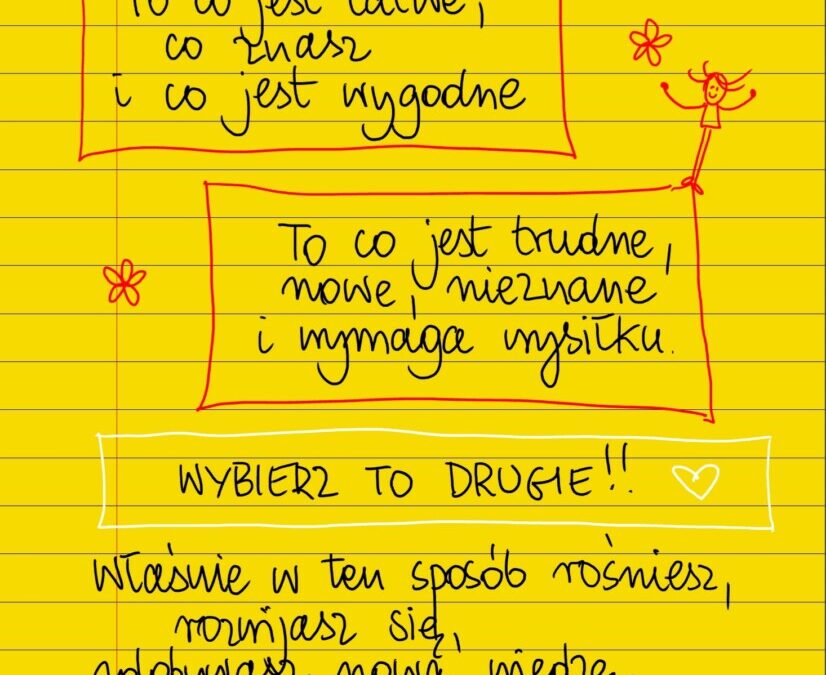 To co jest łatwe,
co znasz
i co jest wygodne
To co jest trudne,
nowe, nieznane
i wymaga wysiłku.
WYBIERZ TO DRUGIE!!
Właśnie w ten sposób rośniesz,
rozwijasz się,
zdobywasz nową wiedzę,